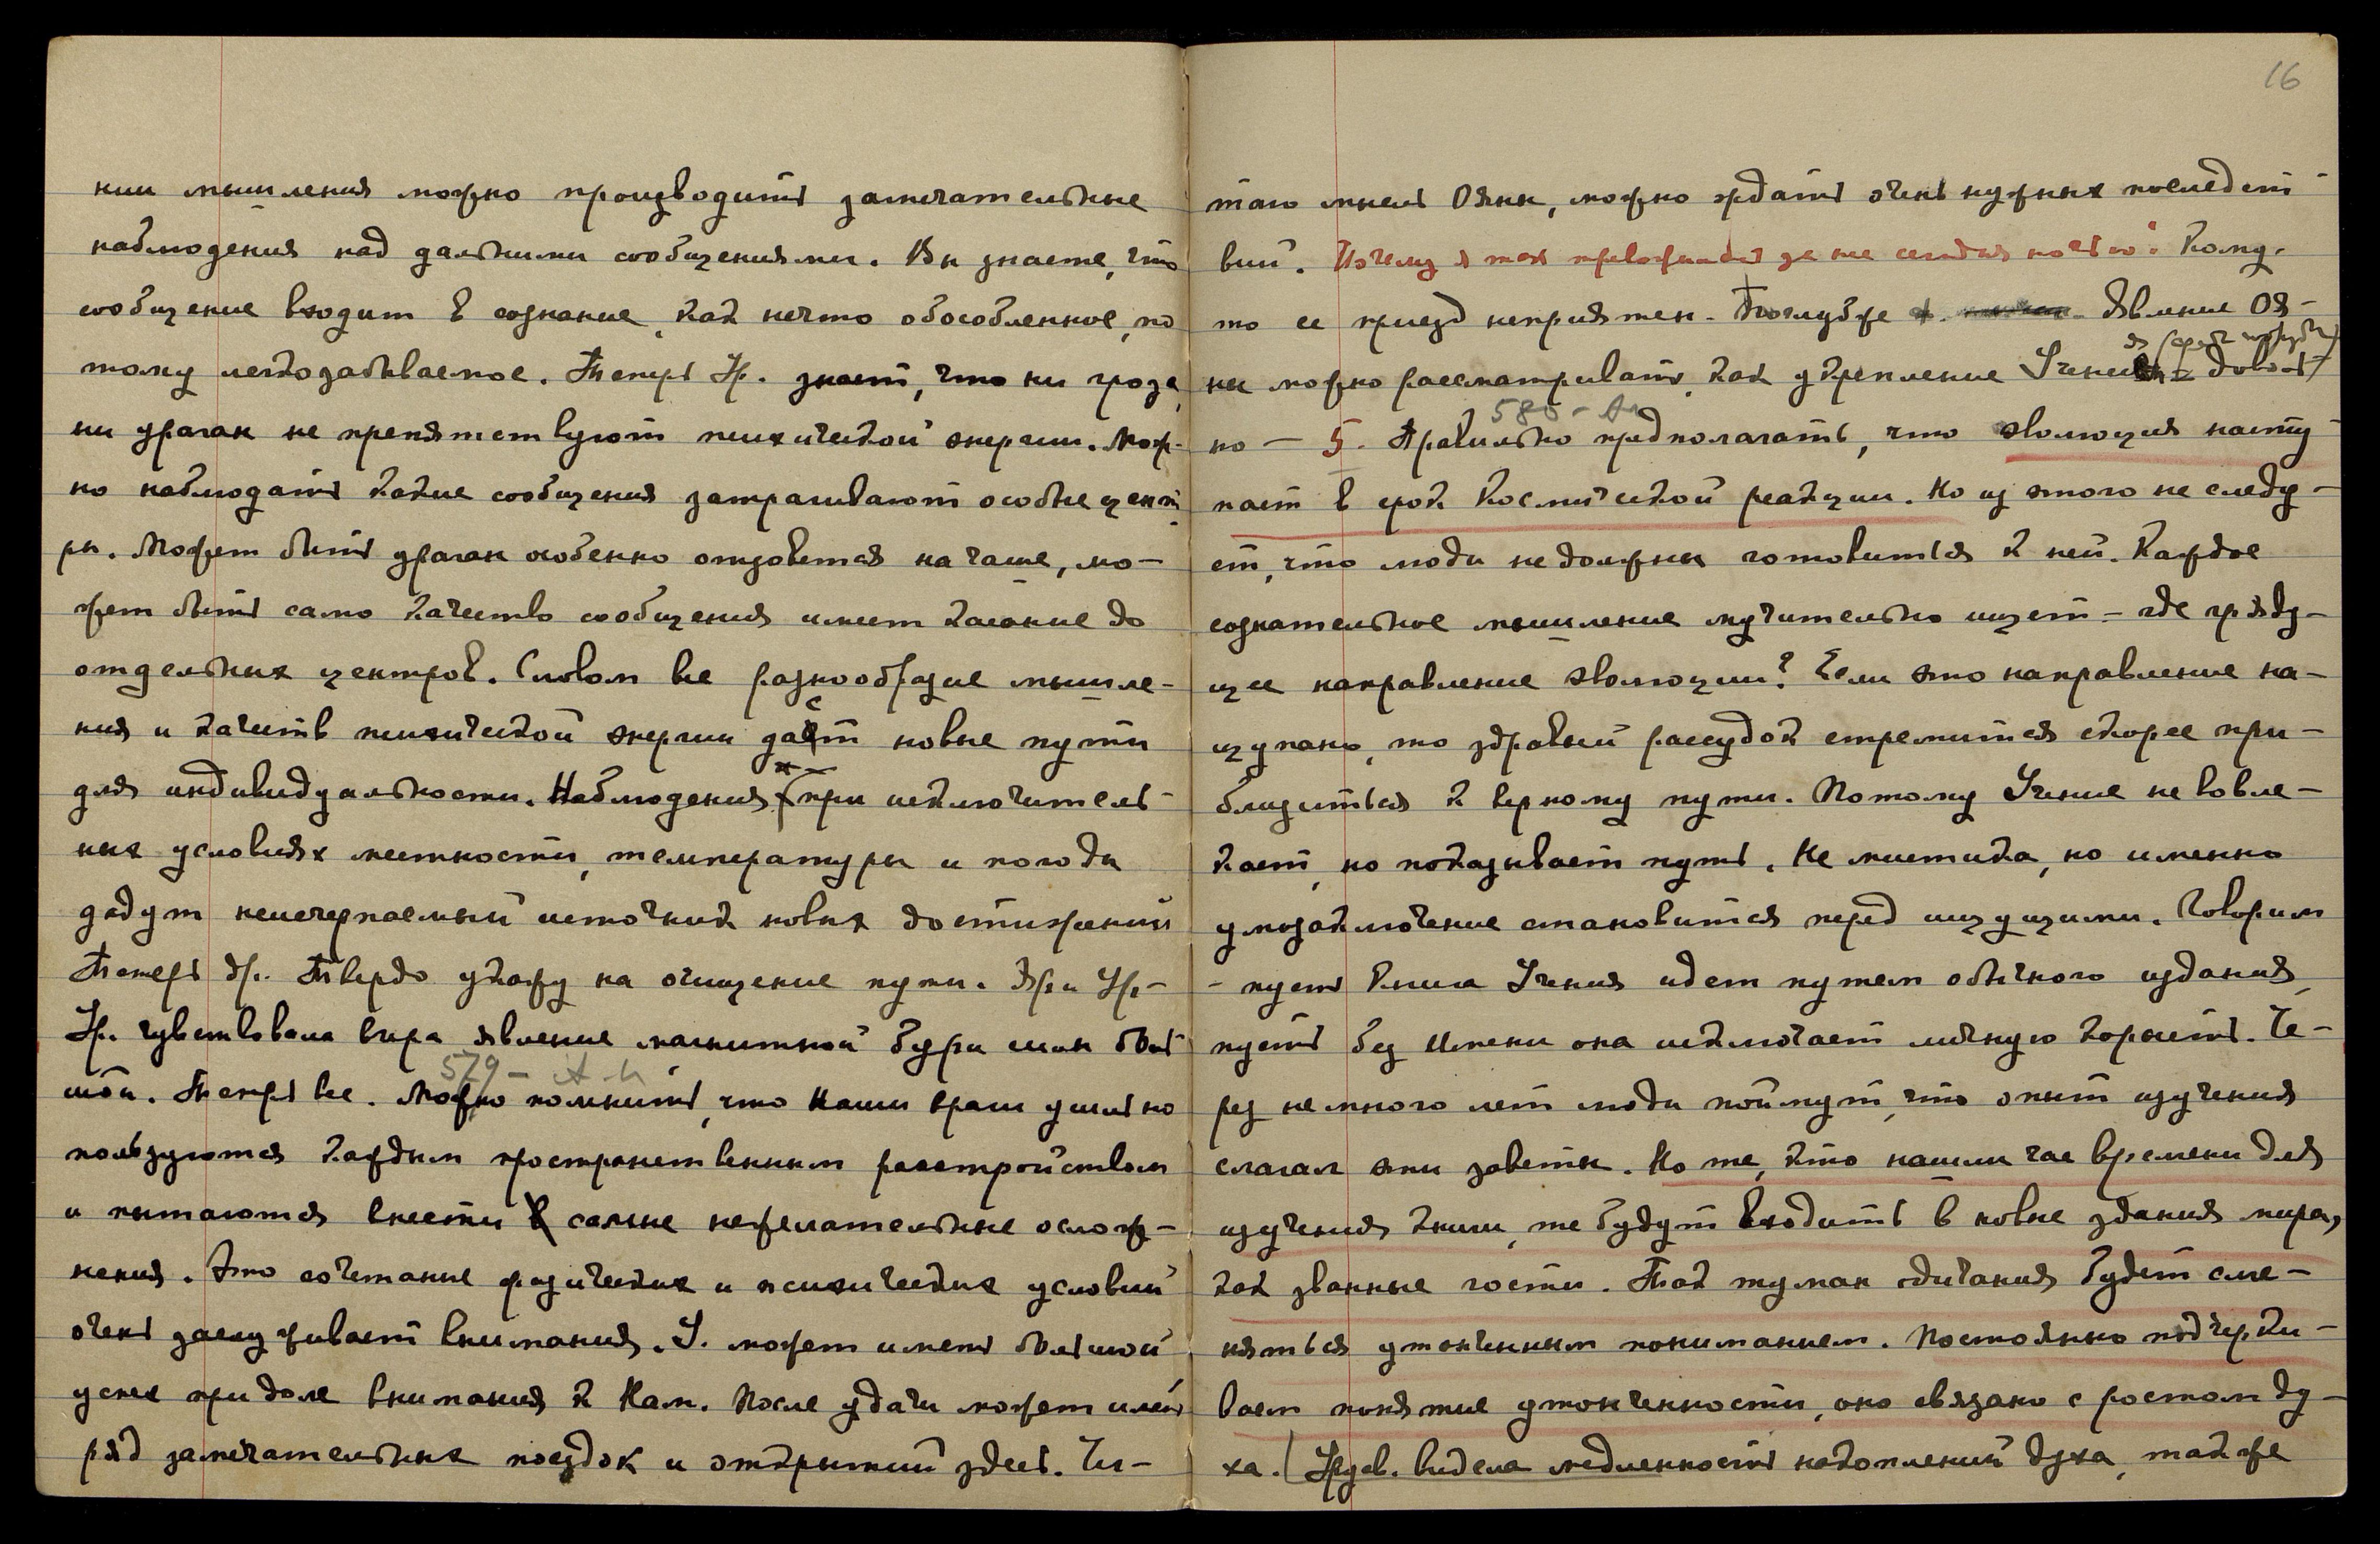 нии мышления можно производить замечательные
наблюдения над дальними сообщениями. Вы знаете, что
сообщение входит в сознание, как нечто обособленное, по
тому легкозабываемое. Теперь Ур. знает, что ни гроза,
ни ураган не препятствуют психической энергии. Мож-
но наблюдать какие сообщения затрагивают особые цент
ры. Может быть ураган особенно отзовется на чаше, мо-
жет быть само качество сообщения имеет касание до
отдельных центров. Словом все разнообразие мышле-
ния и качеств психической энергии дает новые пути
для индивидуальности. Наблюдения при исключитель-
ных условиях местности, температуры и погоды
дадут неисчерпаемый источник новых достижений
Теперь др. Твердо укажу на очищение пути. Ур-
Ур. чувствовала вчера явление магнитной бури или боль
шой. Теперь все. Можно помнить, что Наши враги усильно
579 - А-й
пользуются каждым пространственным расстройством
и пытаются внести самые нежелательные ослож-
нения. Это сочетание физических и психических условий
очень заслуживает внимания. У. может иметь большой
успех при доле внимания к Нам. После удачи может иметь
ряд замечательных поездок и открытий здесь. Чи-
16
таю мысль Ояны, можно ждать очень нужных последст-
вий. Почему я так тревожилась за нее сегодня ночью? Кому-
то ее приезд неприятен. Поглубже Явление Оя-
ны можно рассматривать, как укрепление Учения Доволь-
но — 5. Правильно предполагать, что эволюция насту-
580 - А-й
пает в срок Космической реакции. Но из этого не следу-
ет, что люди не должны готовиться к ней. Каждое
сознательное мышление мучительно ищет — где гряду-
щее направление эволюции? Если это направление на-
щупано, то здравый рассудок стремится скорее при-
близиться к верному пути. Потому Учение не вовле-
кает, но показывает путь. Не мистика, но именно
умозаключение становится перед ищущими. Говорим
- пусть Книга Учения идет путем обычного издания,
пусть без Имени она исключает личную корысть. Че-
рез немного лет люди поймут, что опыт изучения
слагал эти заветы. Но те, кто нашли час времени для
изучения книги, те будут входить в новые здания мира,
как званные гости. Так туман одичания будет сме-
няться утонченным пониманием. Постоянно подчерки-
ваем понятие утонченности, оно связано с ростом ду-
ха. (Урусв. видела медленность накоплений духа, также